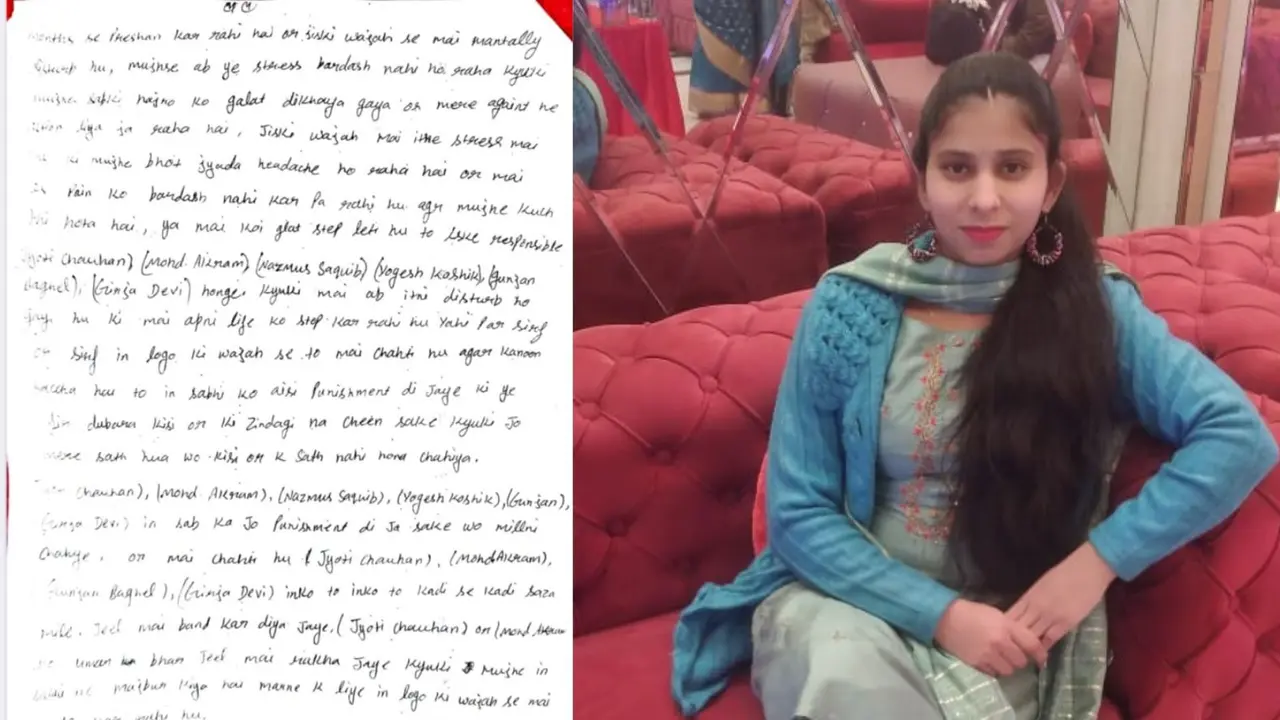 months se Preshan kar rahi hai or jiski wajah se mai mantally
disturb hu, mujhse ab ye stress bardash nahi ho raha kyuki
mujhe sabki najro ko galat dikhaya gaya or mere againt ne
liya ja raha hai, jiski wajah mai itne stress mai
hu ki mujhe bhot jyada headache ho raha hai or mai
is Pain ko bardash nahi kar Pa rahi hu agr mujhe kuch
bhi hota hai, ya mai koi glat step leti hu to iske responsible
(Jyoti Chauhan) (Mohd. Aikram) (Nazmus Saquib) (Yogesh Koshik), (Gunjan
Baghel), (Girija Devi) honge. Kyuki mai ab itni disturb ho
hu ki mai apni life ko stop kar rahi hu yahi Par sirf
or sirf in logo ki wajah se to mai chahti hu agar kanoon
saccha hai to in sabhi ko aisi Punishment di jaye ki ye
dubara kisi or ki Zindagi na cheen sake kyuki Jo
mere sath hua wo kisi or k sath nahi hona chahiya.
Chauhan), (Mohd. Aikram), (Nazmus Saquib), (Yogesh Koshik), (Gunjan),
(Girija Devi) in sab ka Jo Punishment di Ja sake wo millni
chahiye. or mai chahti hu (Jyoti Chauhan), (Mohd Aikram),
(Gunjan Baghel), (Girija Devi) inko to inko to kadi se kadi saza
mile. Jeel mai band kar diya jaye, (Jyoti Chauhan) or (Mohd Aikram
ko umar bhar Jeel mai rakha Jaye kyuki mujhe in
ne majbur kiya hai marne k liye in logo ki wajah se mai
hu.